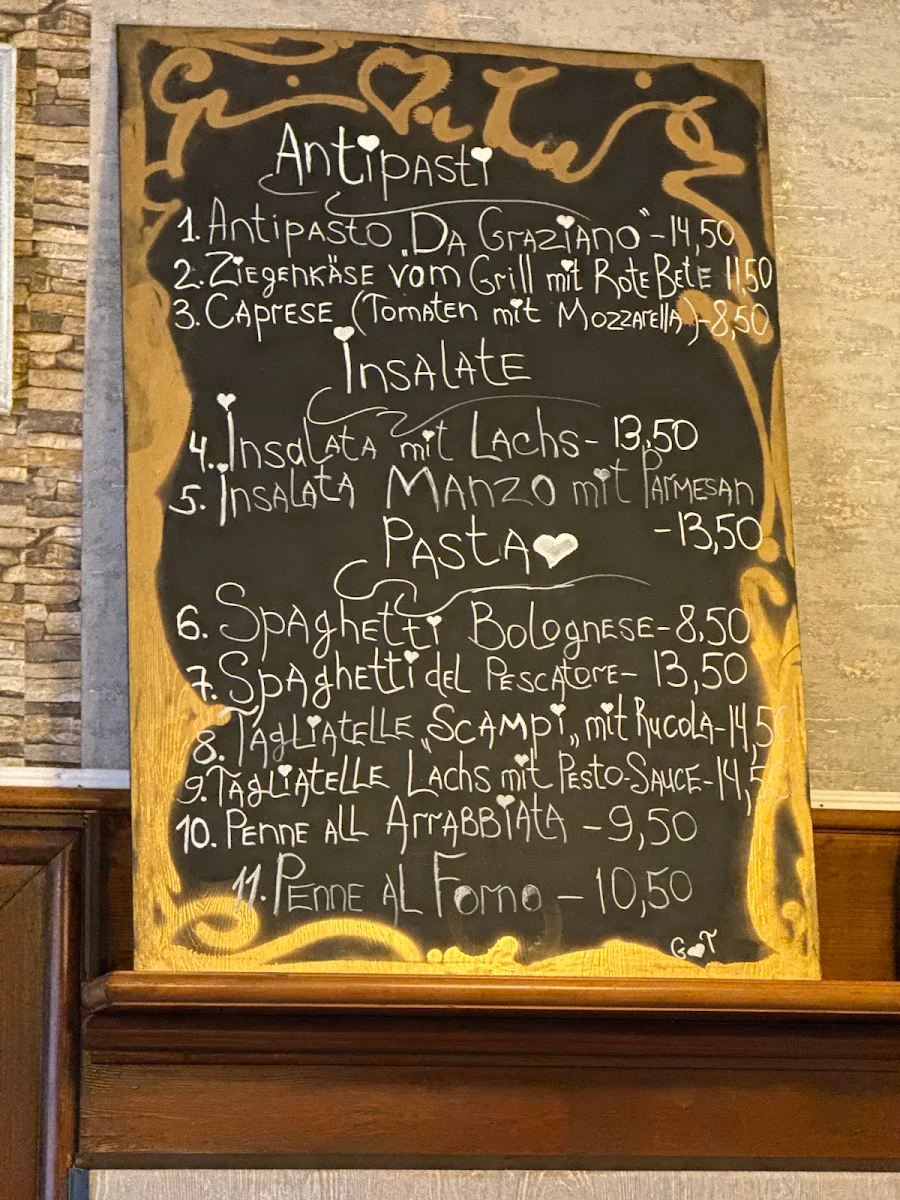 Antipasti
1. Antipasto „Da Graziano" - 14,50
2. Ziegenkäse vom Grill mit Rote Bete 11,50
3. Caprese (Tomaten mit Mozzarella) - 8,50
Insalate
4. Insalata mit Lachs - 13,50
5. Insalata Manzo mit Parmesan
- 13,50
Pasta
6. Spaghetti Bolognese - 8,50
7. Spaghetti del Pescatore - 13,50
8. Tagliatelle „Scampi„ mit Rucola - 14,50
9. Tagliatelle Lachs mit Pesto-Sauce - 14,5
10. Penne all Arrabbiata - 9,50
11. Penne al Forno - 10,50
G♥T